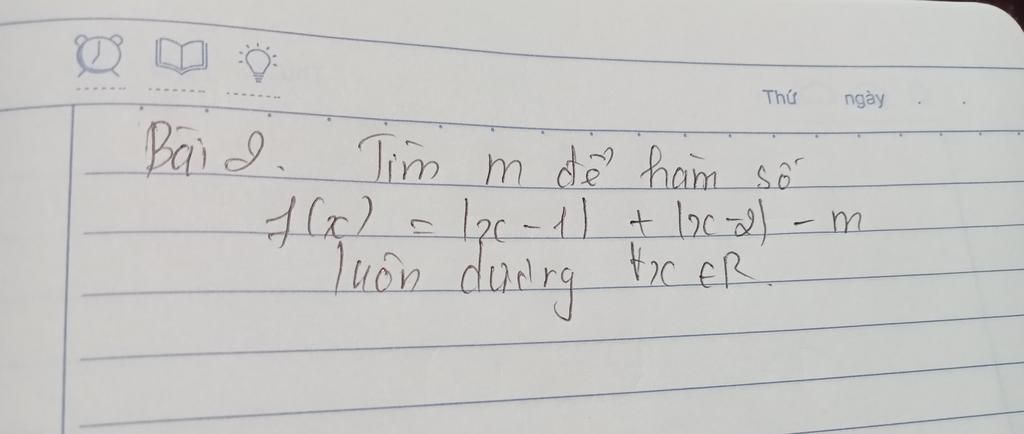 Thứ ngày . .
Bài 2. Tìm m để hàm số
f(x) = |x - 1| + |x - 2| - m
luôn dương ∀x ∈ R.